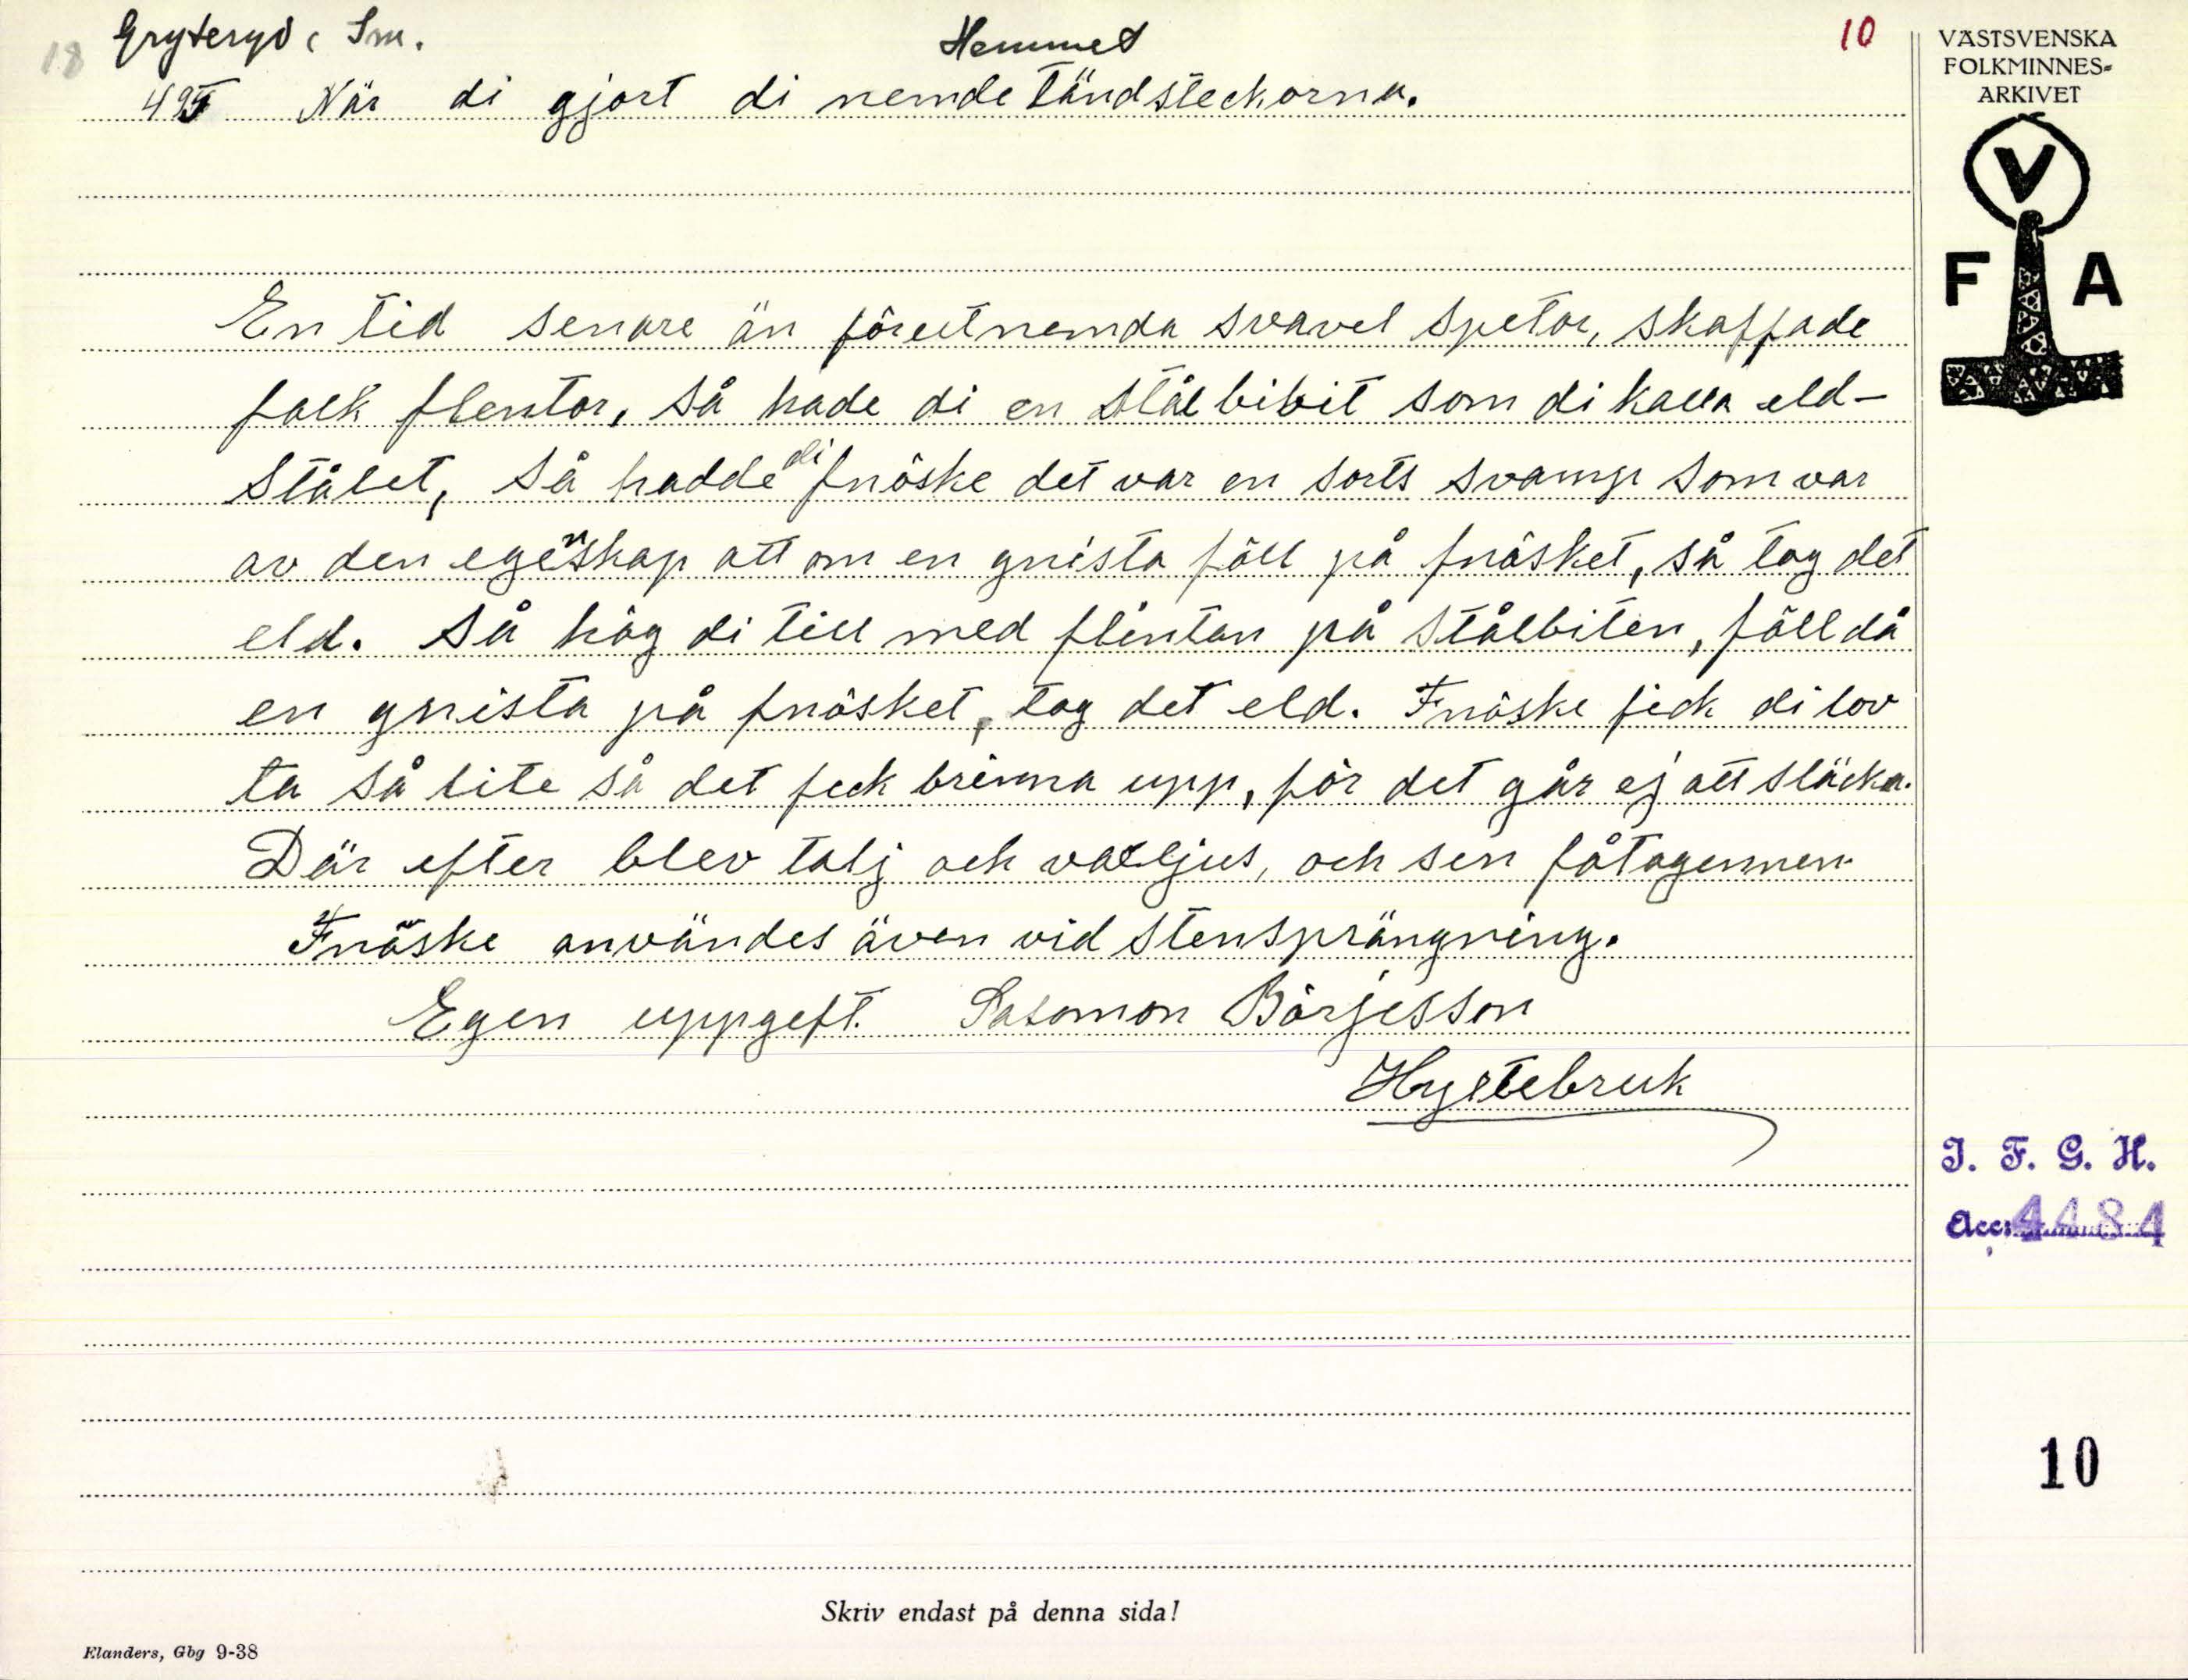 18 Gryteryd, Sm. Hemmet 10
495 När di gjort di nemde tändsteckorna.
En tid senare än förutnemda svavel spetor, skaffade
folk flentor, så hade di en stålbibit som di kalla eld-
stålet, så hadde di fnöske det var en sorts svamp som var
av den egenskap att om en gnista föll på fnösket, så tog det
eld. Så hög di till med flintan på stålbiten, föll då
en gnista på fnösket, tog det eld. Fnöske fick di lov
ta så lite så det feck brinna upp, för det går ej att släcka.
Där efter blev talj och vaxljus, och sen fåtogennen
Fnöske användes även vid stensprängning.
Egen uppgeft. Salomon Börjesson
Hyltebruk
VÄSTSVENSKA
FOLKMINNES-
ARKIVET
V
F A
I. F. G. H.
Acc: 4484
10
Skriv endast på denna sida!
Elanders, Gbg 9-38